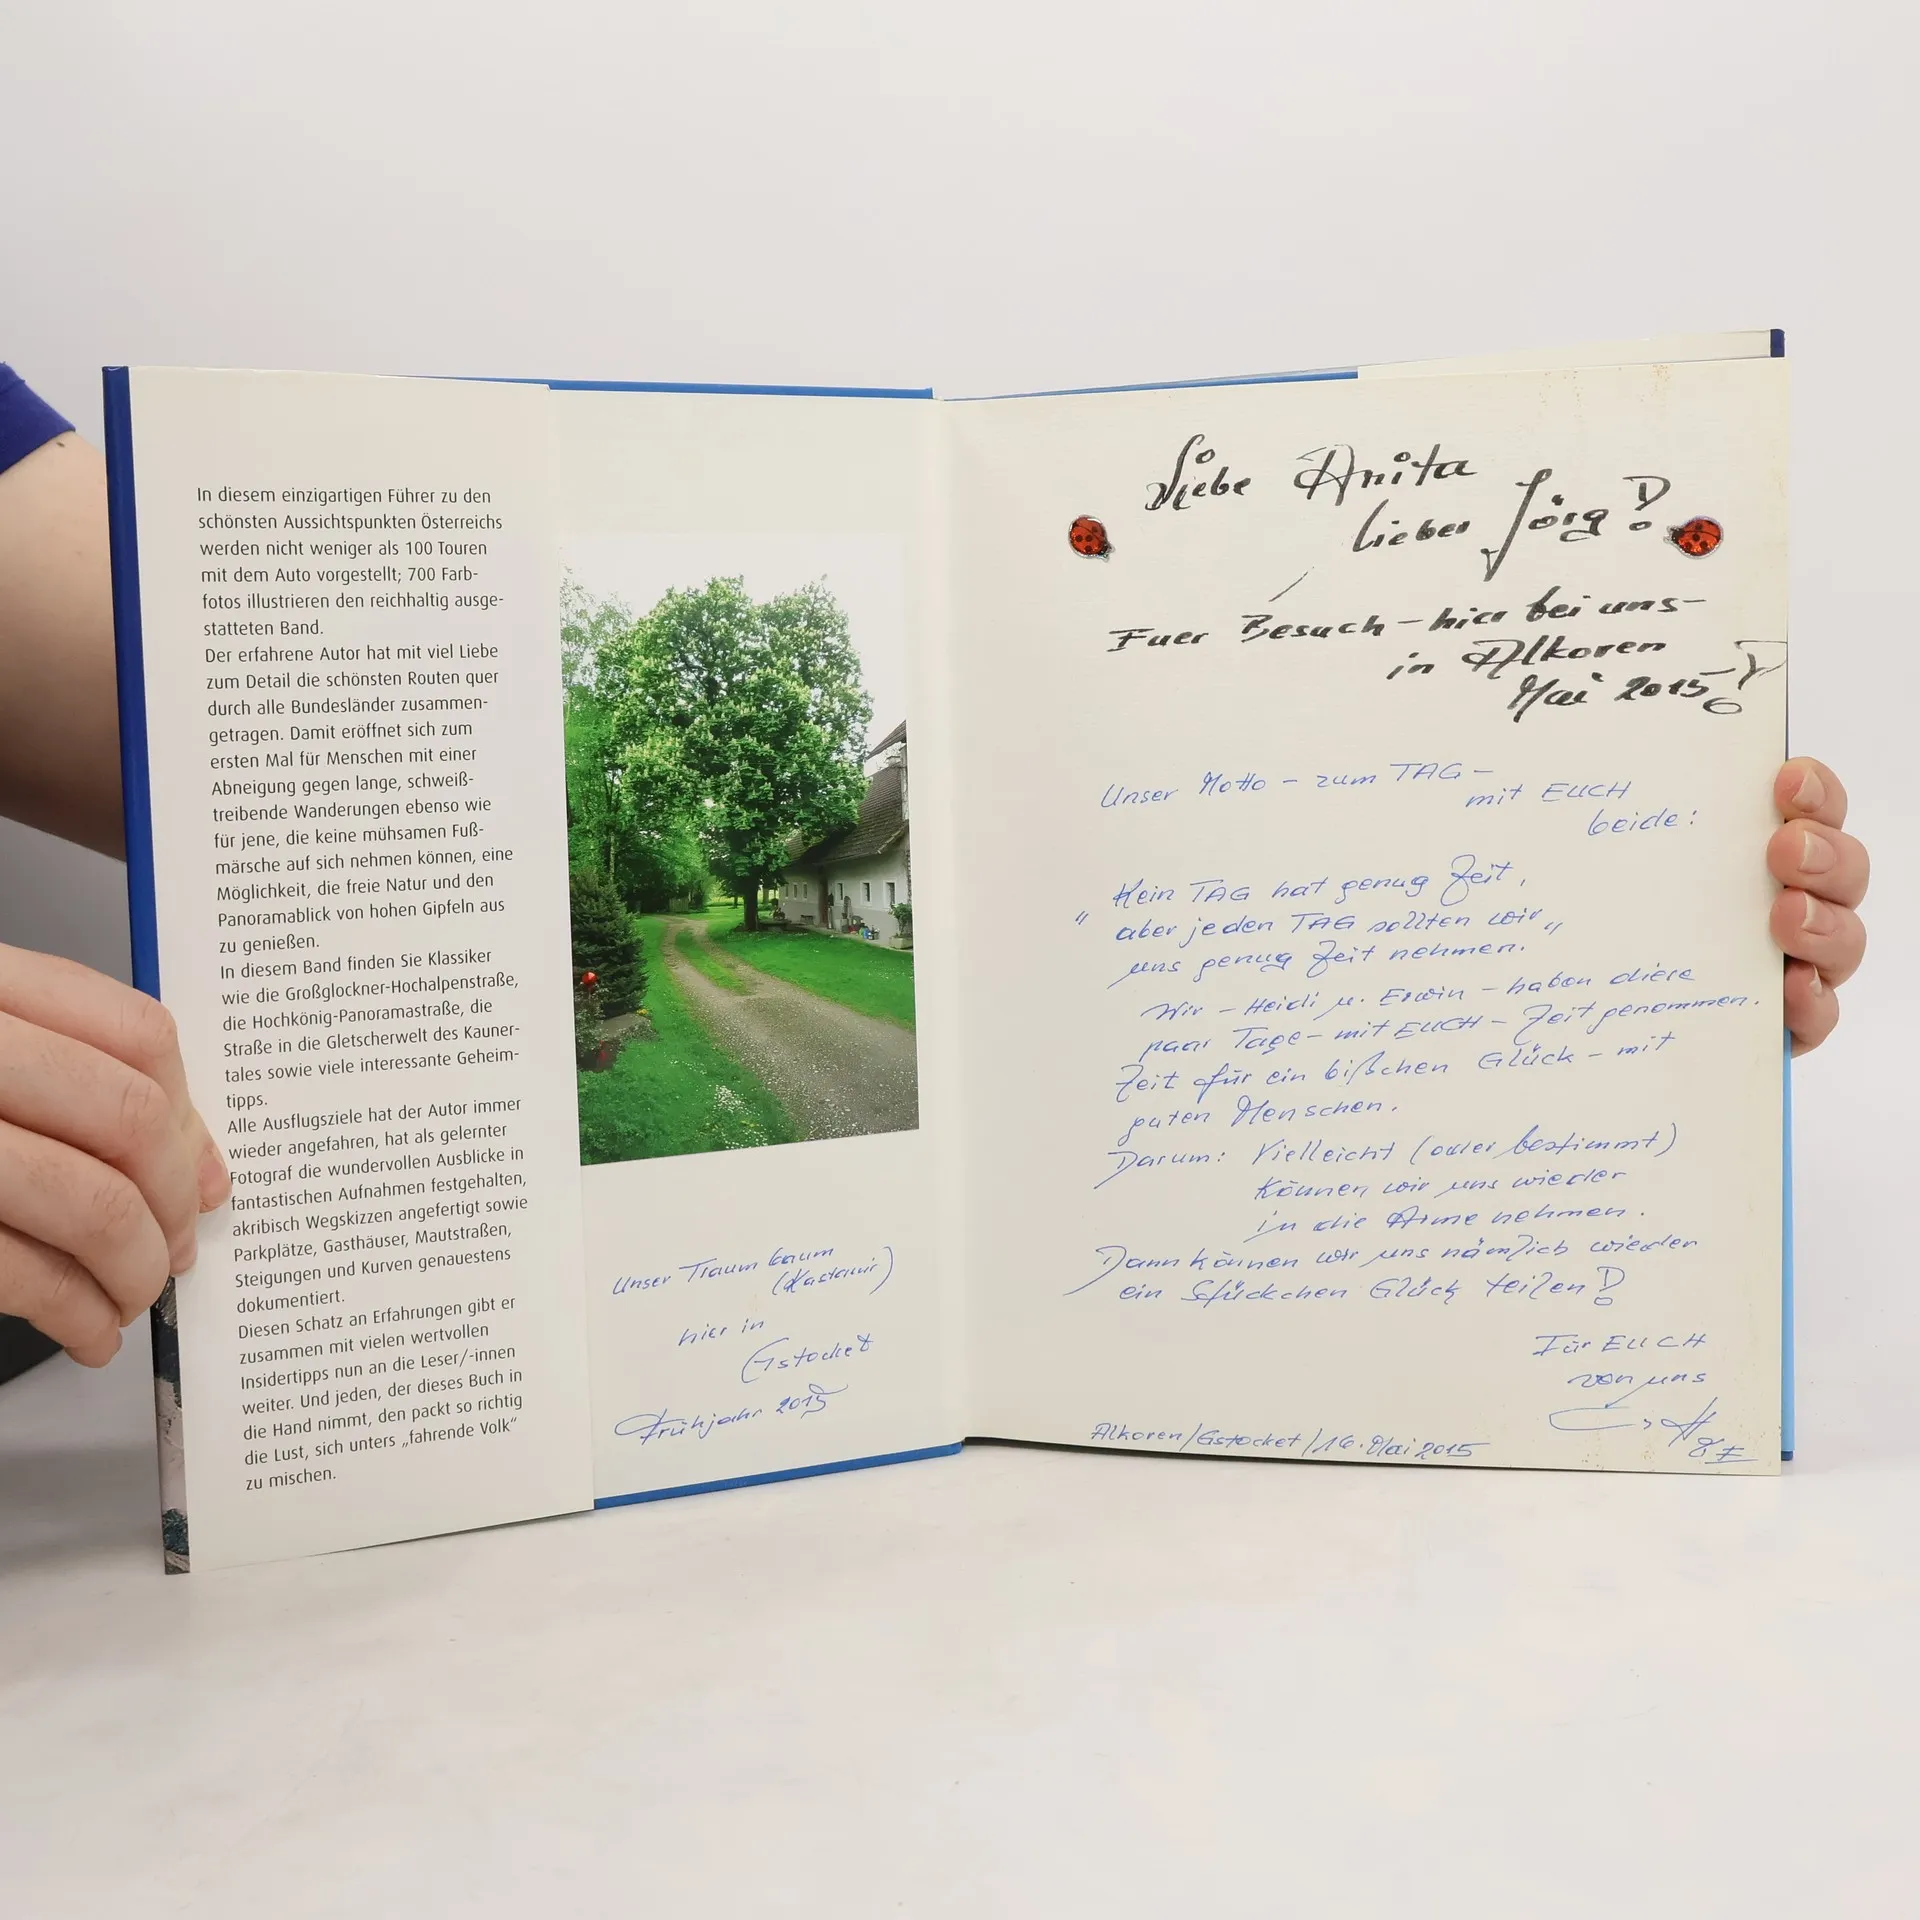 In diesem einzigartigen Führer zu den
schönsten Aussichtspunkten Österreichs
werden nicht weniger als 100 Touren
mit dem Auto vorgestellt; 700 Farb-
fotos illustrieren den reichhaltig ausge-
statteten Band.
Der erfahrene Autor hat mit viel Liebe
zum Detail die schönsten Routen quer
durch alle Bundesländer zusammen-
getragen. Damit eröffnet sich zum
ersten Mal für Menschen mit einer
Abneigung gegen lange, schweiß-
treibende Wanderungen ebenso wie
für jene, die keine mühsamen Fuß-
märsche auf sich nehmen können, eine
Möglichkeit, die freie Natur und den
Panoramablick von hohen Gipfeln aus
zu genießen.
In diesem Band finden Sie Klassiker
wie die Großglockner-Hochalpenstraße,
die Hochkönig-Panoramastraße, die
Straße in die Gletscherwelt des Kauner-
tales sowie viele interessante Geheim-
tipps.
Alle Ausflugsziele hat der Autor immer
wieder angefahren, hat als gelernter
Fotograf die wundervollen Ausblicke in
fantastischen Aufnahmen festgehalten,
akribisch Wegskizzen angefertigt sowie
Parkplätze, Gasthäuser, Mautstraßen,
Steigungen und Kurven genauestens
dokumentiert.
Diesen Schatz an Erfahrungen gibt er
zusammen mit vielen wertvollen
Insidertipps nun an die Leser/-innen
weiter. Und jeden, der dieses Buch in
die Hand nimmt, den packt so richtig
die Lust, sich unters „fahrende Volk“
zu mischen.
Unser Traumbaum
(Kastanie)
hier in
Gstocket
Frühjahr 2015
Liebe Anita
lieber Jörg!
Euer Besuch – hier bei uns –
in Alkoven
Mai 2015 – !
Unser Motto – zum TAG –
mit EUCH
beide:
" Kein TAG hat genug Zeit,
aber jeden TAG sollten wir
uns genug Zeit nehmen. "
Wir – Heidi u. Erwin – haben diese
paar Tage – mit EUCH – Zeit genommen.
Zeit für ein bißchen Glück – mit
guten Menschen.
Darum: Vielleicht (oder bestimmt)
können wir uns wieder
in die Arme nehmen.
Dann können wir uns nämlich wieder
ein Stückchen Glück teilen!
Für EUCH
von uns
Alkoven/Gstocket/16. Mai 2015